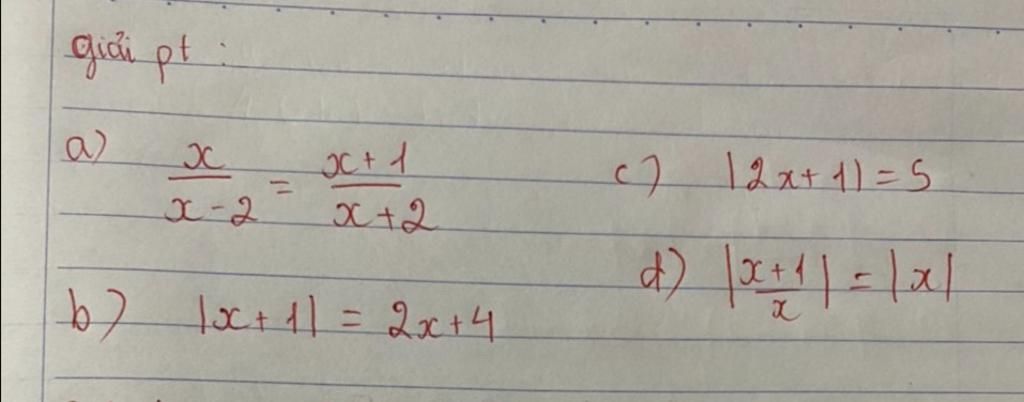 giải pt :
a) x/(x-2) = (x+1)/(x+2)
c) |2x+1| = 5
b) |x+1| = 2x+4
d) |(x+1)/x| = |x|